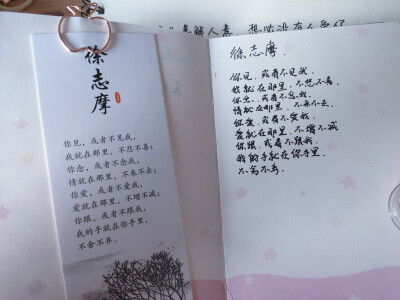 徐
志
摩
你见，或者不见我，
我就在那里，不悲不喜；
你念，或者不念我，
情就在那里，不来不去；
你爱，或者不爱我，
爱就在那里，不增不减；
你跟，或者不跟我，
我的手就在你手里，
不舍不弃。
解人意，想必没有人
徐志摩.
你见，或者不见我，
我就在那里，不悲不喜，
你念，或者不念我，
情就在那里，不来不去，
你爱，或者不爱我，
爱就在那里 不增不减
你跟，或者不跟我，
我的手就在你手里，
不舍不弃。